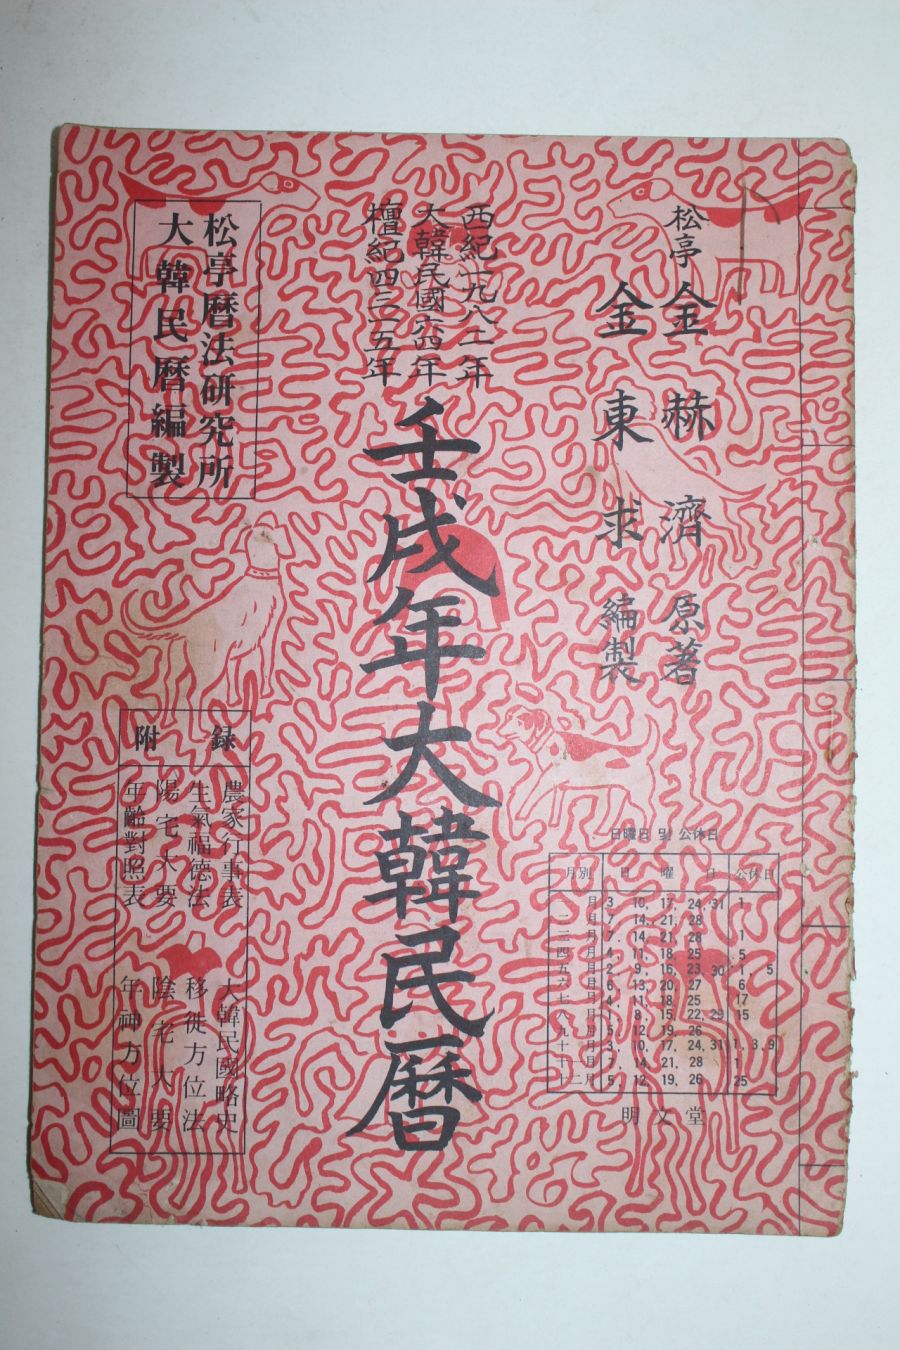 松亭 金赫濟 原著
金東求 編製
西紀一九八二年
大韓民國六四年
檀紀四三一五年
壬戌年大韓民曆
松亭曆法研究所
大韓民曆編製
附錄
農家行事表 大韓民國略史
生氣福德法 移徙方位法
陽宅大要 陰宅大要
年齡對照表 年神方位圖
日曜日 및 公休日
月別 日曜日 公休日
一月 3, 10, 17, 24, 31 1
二月 7, 14, 21, 28
三月 7, 14, 21, 28 1
四月 4, 11, 18, 25 5
五月 2, 9, 16, 23, 30 1, 5
六月 6, 13, 20, 27 6
七月 4, 11, 18, 25 17
八月 1, 8, 15, 22, 29 15
九月 5, 12, 19, 26
十月 3, 10, 17, 24, 31 1, 3, 9
十一月 7, 14, 21, 28 1
十二月 5, 12, 19, 26 25
明文堂